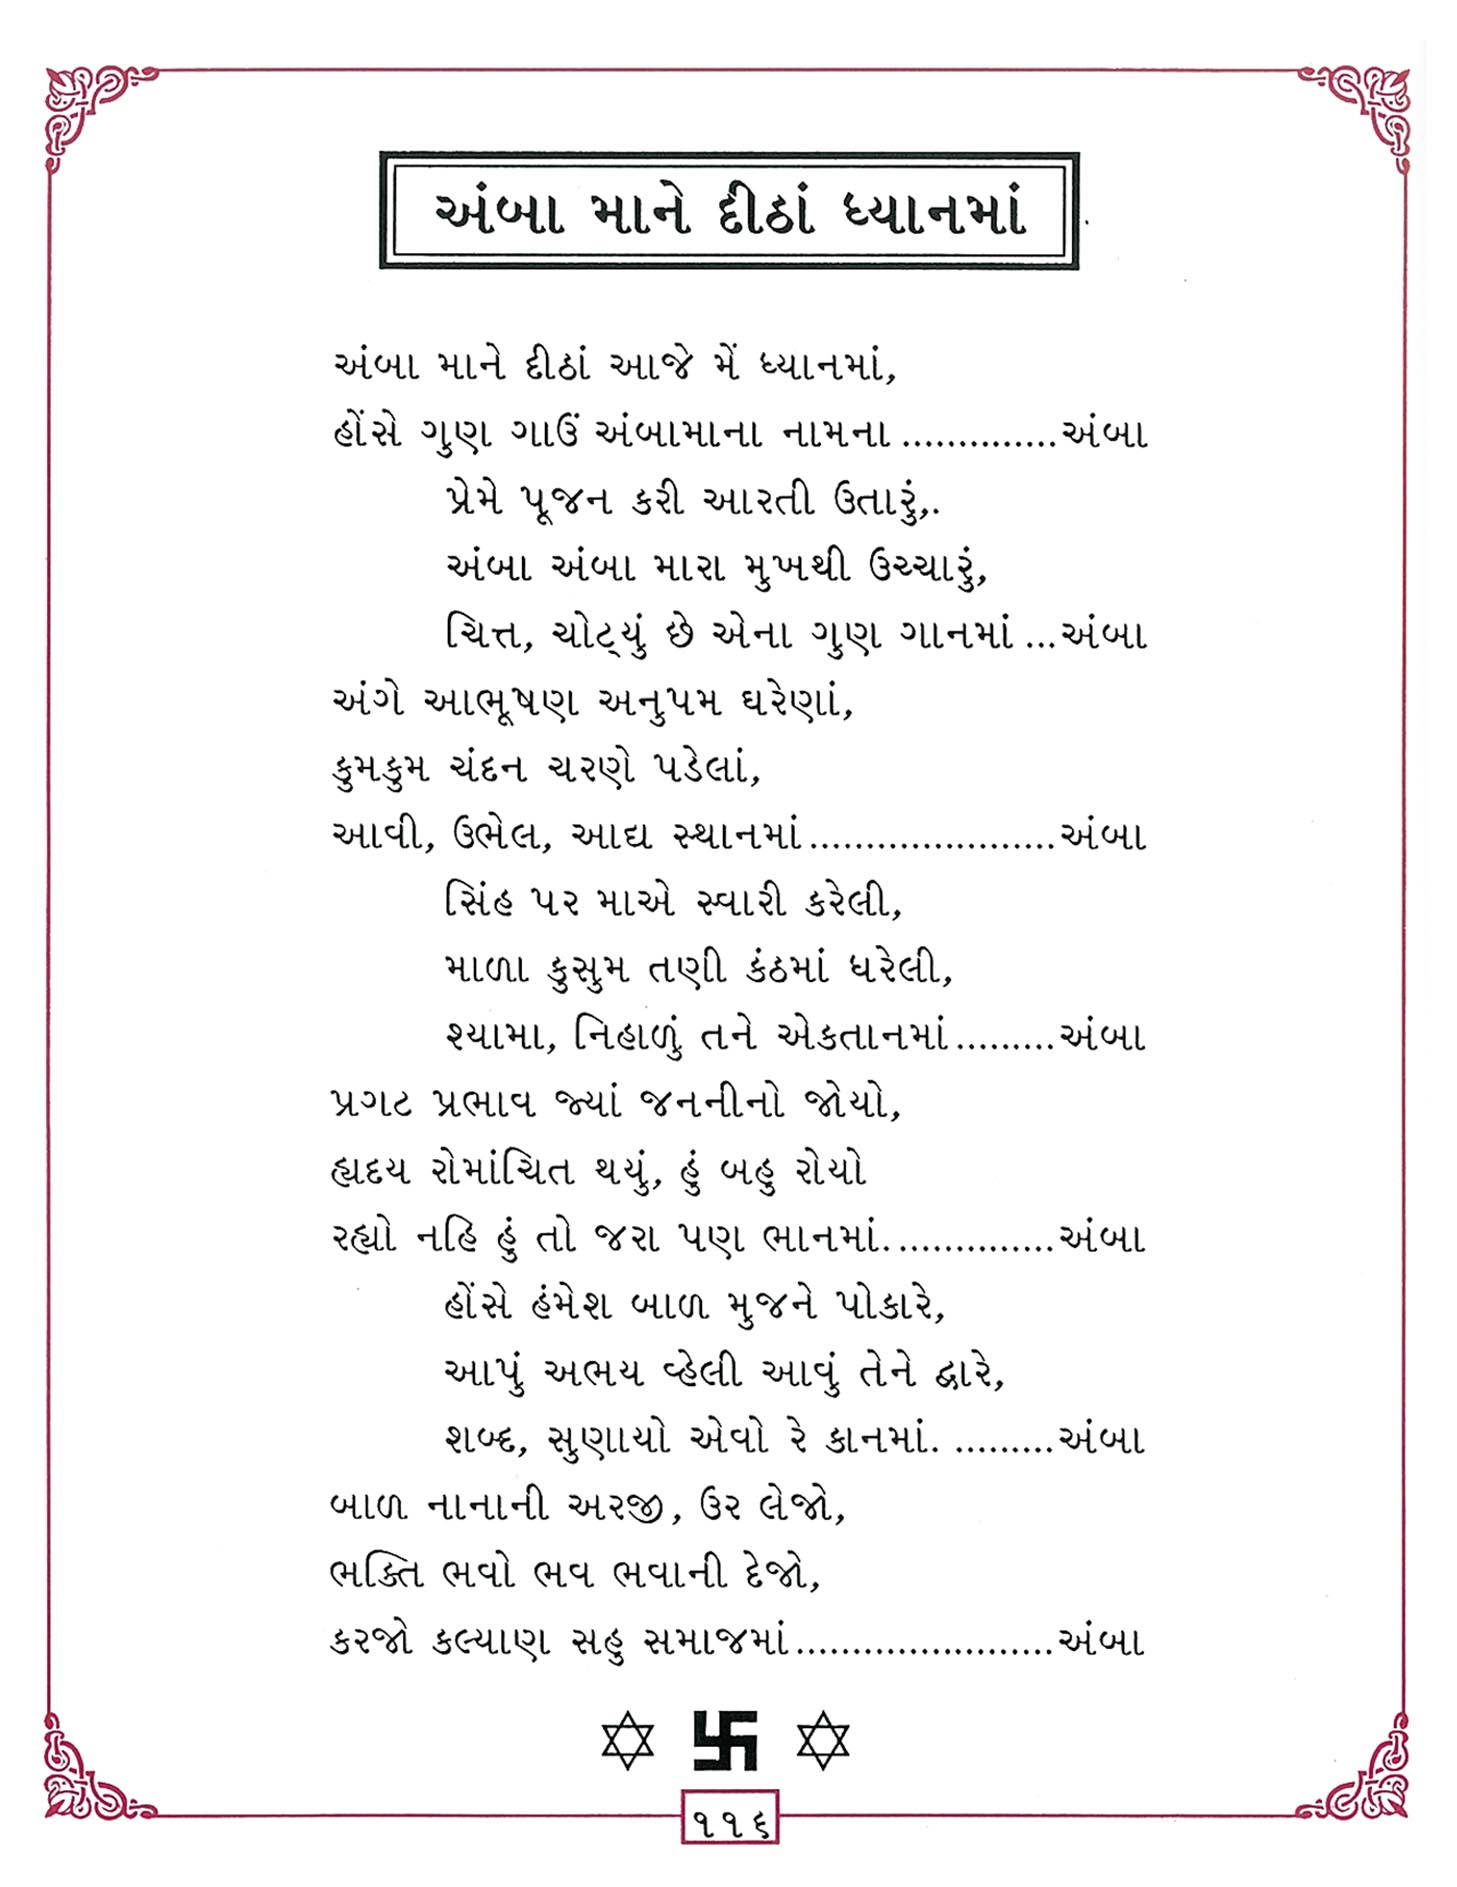 અંબા માને દીઠાં ધ્યાનમાં
અંબા માને દીઠાં આજે મેં ધ્યાનમાં,
હોંસે ગુણ ગાઉં અંબામાના નામના ..............અંબા
પ્રેમે પૂજન કરી આરતી ઉતારું,.
અંબા અંબા મારા મુખથી ઉચ્ચારું,
ચિત્ત, ચોટ્યું છે એના ગુણ ગાનમાં ...અંબા
અંગે આભૂષણ અનુપમ ઘરેણાં,
કુમકુમ ચંદન ચરણે પડેલાં,
આવી, ઉભેલ, આદ્ય સ્થાનમાં......................અંબા
સિંહ પર માએ સ્વારી કરેલી,
માળા કુસુમ તણી કંઠમાં ધરેલી,
શ્યામા, નિહાળું તને એકતાનમાં.........અંબા
પ્રગટ પ્રભાવ જ્યાં જનનીનો જોયો,
હ્યદય રોમાંચિત થયું, હું બહુ રોયો
રહ્યો નહિ હું તો જરા પણ ભાનમાં...............અંબા
હોંસે હંમેશ બાળ મુજને પોકારે,
આપું અભય વ્હેલી આવું તેને દ્વારે,
શબ્દ, સુણાયો એવો રે કાનમાં. .........અંબા
બાળ નાનાની અરજી, ઉર લેજો,
ભક્તિ ભવો ભવ ભવાની દેજો,
કરજો કલ્યાણ સહુ સમાજમાં.......................અંબા
૧૧૬